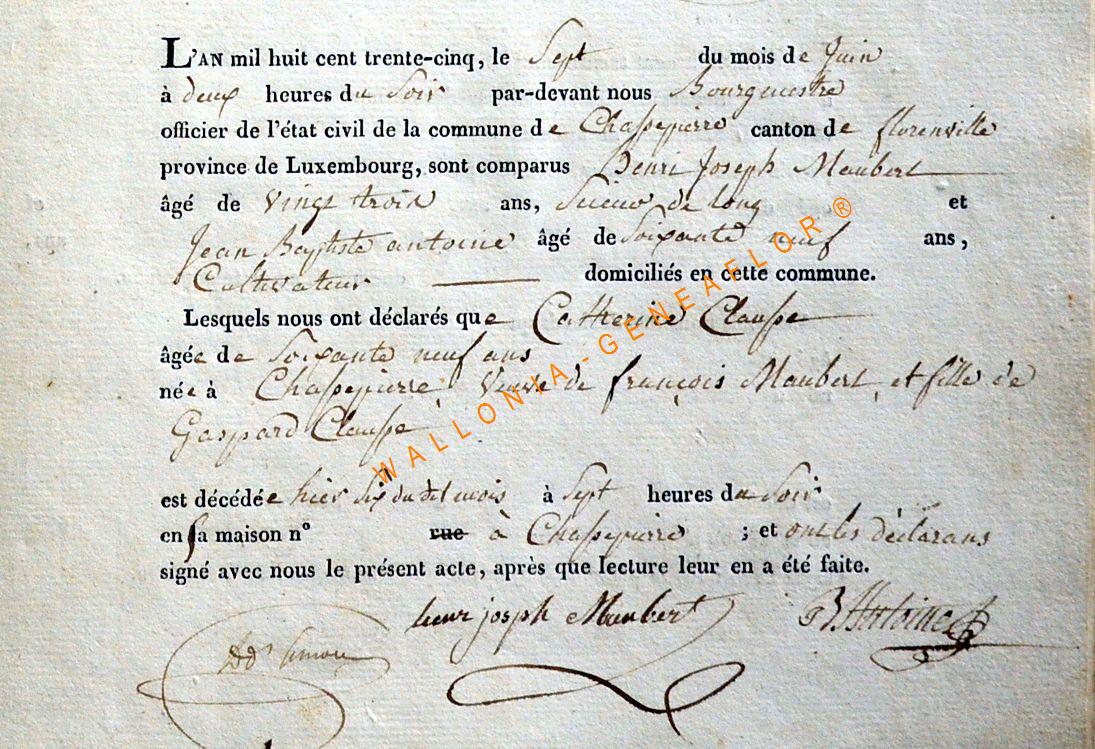 L'AN mil huit cent trente-cinq, le Sept du mois de Juin
à deux heures du Soir par-devant nous Bourgmestre
officier de l'état civil de la commune de Chassepierre canton de florenville
province de Luxembourg, sont comparus Henri Joseph Maubert
âgé de vingt trois ans, Scieur de long et
Jean Baptiste antoine âgé de Soixante neuf ans,
Cultivateur domiciliés en cette commune.
Lesquels nous ont déclarés que Catherine Clausse
âgée de Soixante neuf ans
née à Chassepierre, Veuve de françois Maubert, et fille de
Gaspard Clausse
est décédée hier Six du dit mois à Sept heures du Soir
en sa maison n° rue à Chassepierre ; et ont les déclarans
signé avec nous le présent acte, après que lecture leur en a été faite.
henri joseph Maubert
B Antoine
WALLONIA-GENEAFLOR ®